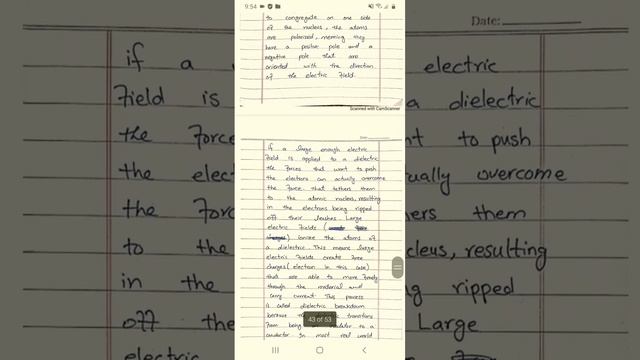 9:54
to congregate on one side
of the nucleus, the atoms
are polarized, meaning they
have a positive pole and a
negative pole that are
oriented with the direction
of the electric field.
Scanned with CamScanner
Date:
if a large enough electric
field is applied to a dielectric
the forces that want to push
the electrons can actually overcome
the force that tethers them
to the atomic nucleus, resulting
in the electrons being ripped
off their leashes. Large
electric fields (
) ionize the atoms of
a dielectric. This means large
electric fields create free
charges (electron in this case)
that are able to move freely
through the material and
carry current. This process
is called dielectric breakdown
because transitions
from being to a
conductor. In most real world
43 of 53
Date:
if a electric
field is a dielectric
the force to push
the elec ually overcome
the for ers them
to the cleus, resulting
in the ng ripped
off the Large
electric